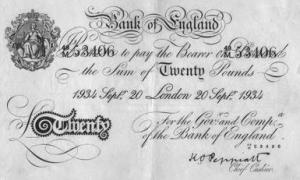 Bank of England
53406 to pay the Bearer on 53406
the Sum of Twenty Pounds
1934 Sept. 20 London 20 Sept. 1934
For the Gov. and Comp.
of the Bank of England
Twenty
K O Peppiatt
Chief Cashier